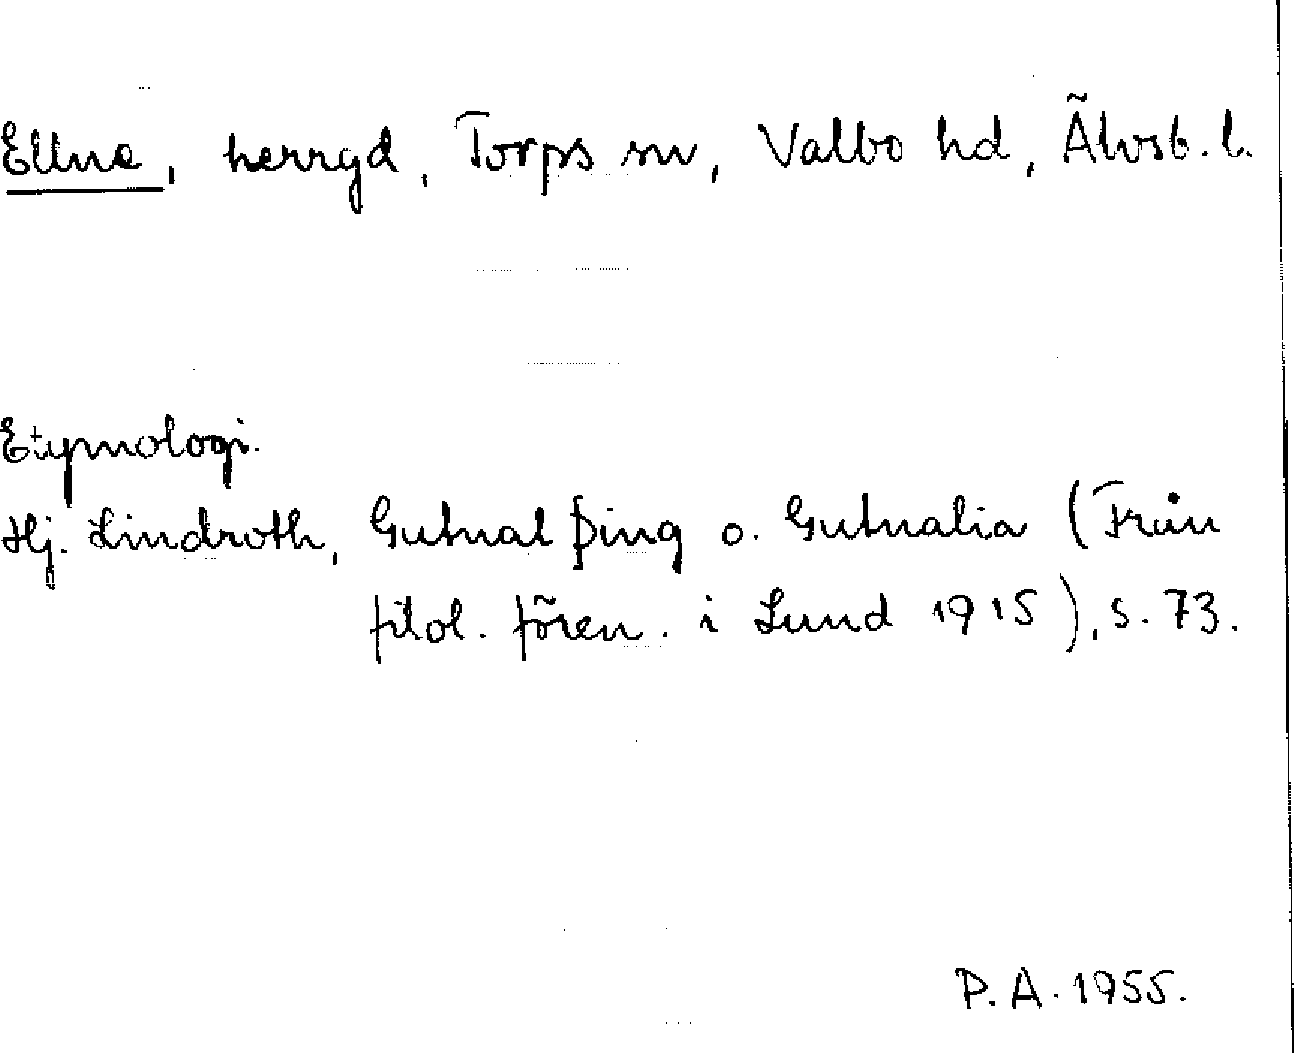 Ellne, herrgd, Torps sn, Valbo hd, Älvsb. l.
Etymologi.
Hj. Lindroth, Gutnal þing o. Gutnalia (Från
filol. fören. i Lund 1915), s. 73.
P. A. 1955.